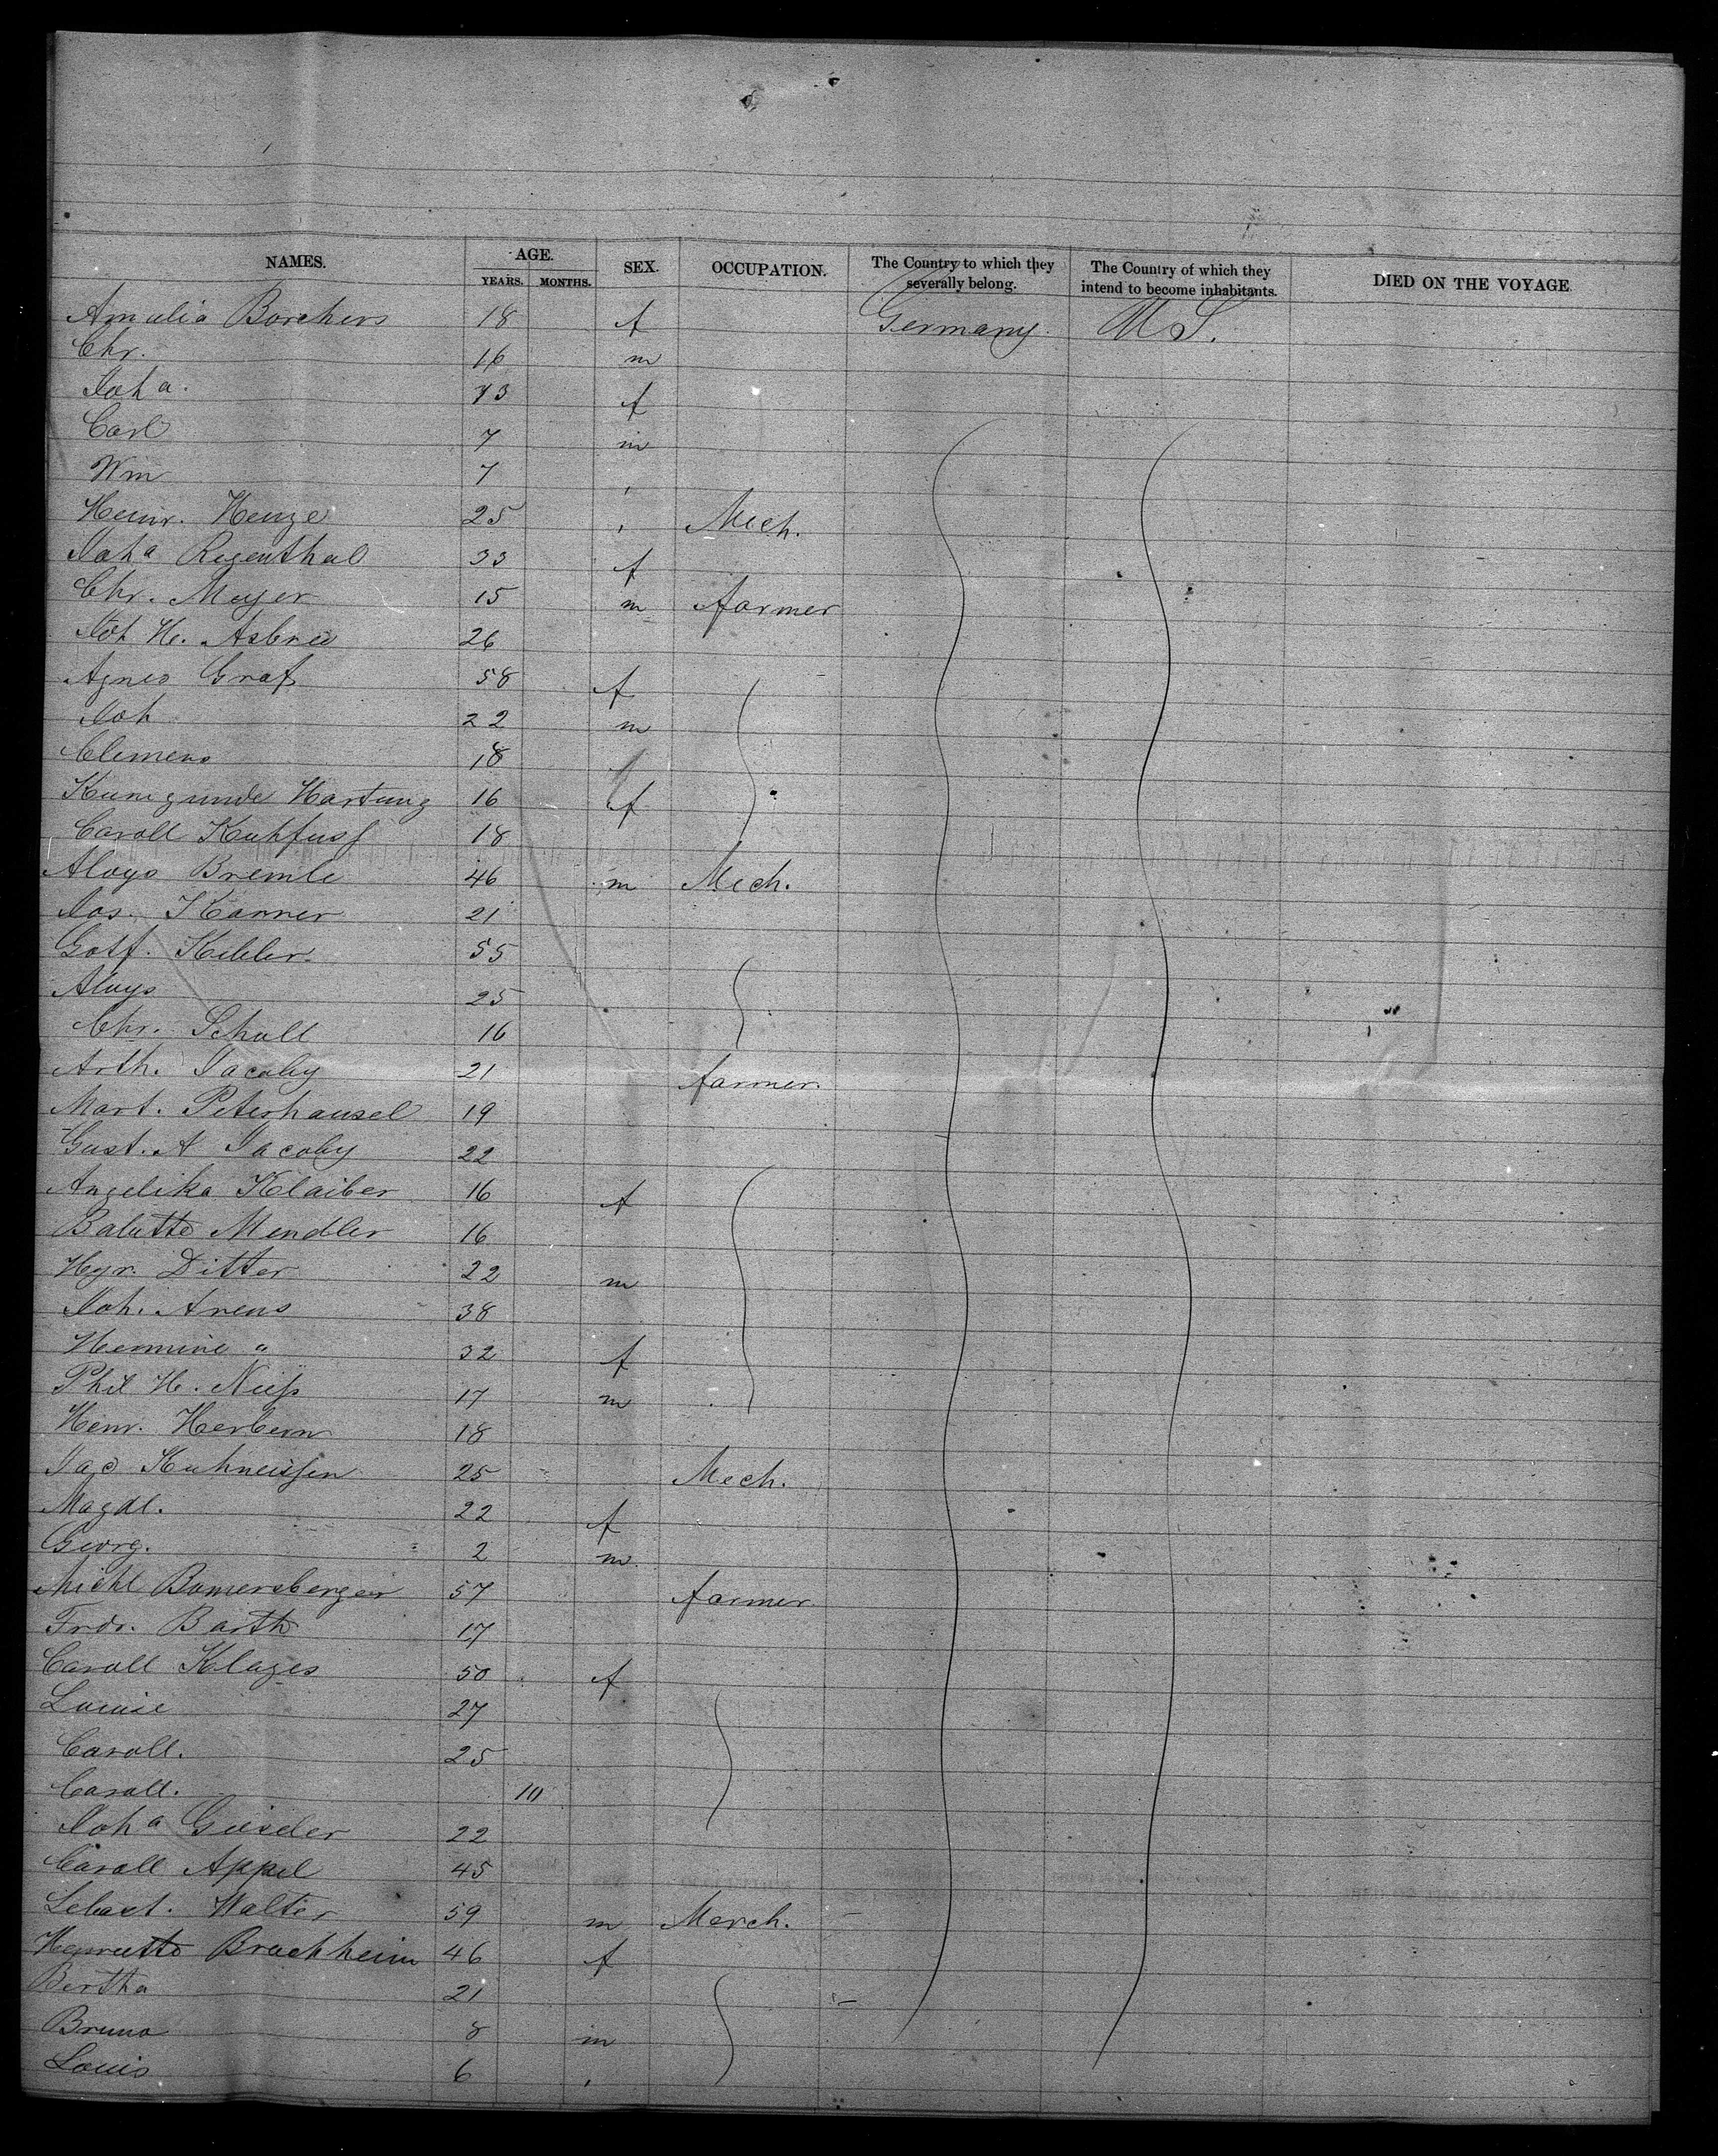 NAMES. AGE. YEARS. MONTHS. SEX. OCCUPATION. The Country to which they severally belong. The Country of which they intend to become inhabitants. DIED ON THE VOYAGE
Amalia Borchers 18 f Germany U S.
Chr. 16 m
Joha. 13 f
Carl 7 m
Wm 7 '
Heinr. Henze 25 ' Mech.
Joha Regenthal 33 f
Chr. Meyer 15 m farmer
Joh H. 26
Agnes Graf 58 f
Joh 22 m
Clemens 18
Kunigunde Hartung 16 f
Caroll Kuhfuss 18
Aloys Bremle 46 m Mech.
Jos. Kanner 21
Gotf. Kibler. 55
Aloys 25
Chr. Schull 16
Arth. Jacoby 21 farmer.
Mart. Peterhansel 19
Gust. A Jacoby 22
Angelika Klaiber 16 f
Mendler 16
Hyr. Ditter 22 m
Joh. Arens 38
Hermine " 32 f
Phil H. 17 m
Heinr. 18
Jac 25 Mech.
Magdl. 22 f
Georg. 2 m
Michl Bomersberger 57 farmer
Frdr. Barth 17
Caroll Klages 50 f
Louise 27
Caroll. 25
Caroll. 10
Joha Gieseler 22
Caroll Appel 45
Sebast. Walter 59 m Merch.
Bruchheim 46 f
Bertha 21
Bruno 8 m
Louis 6 '